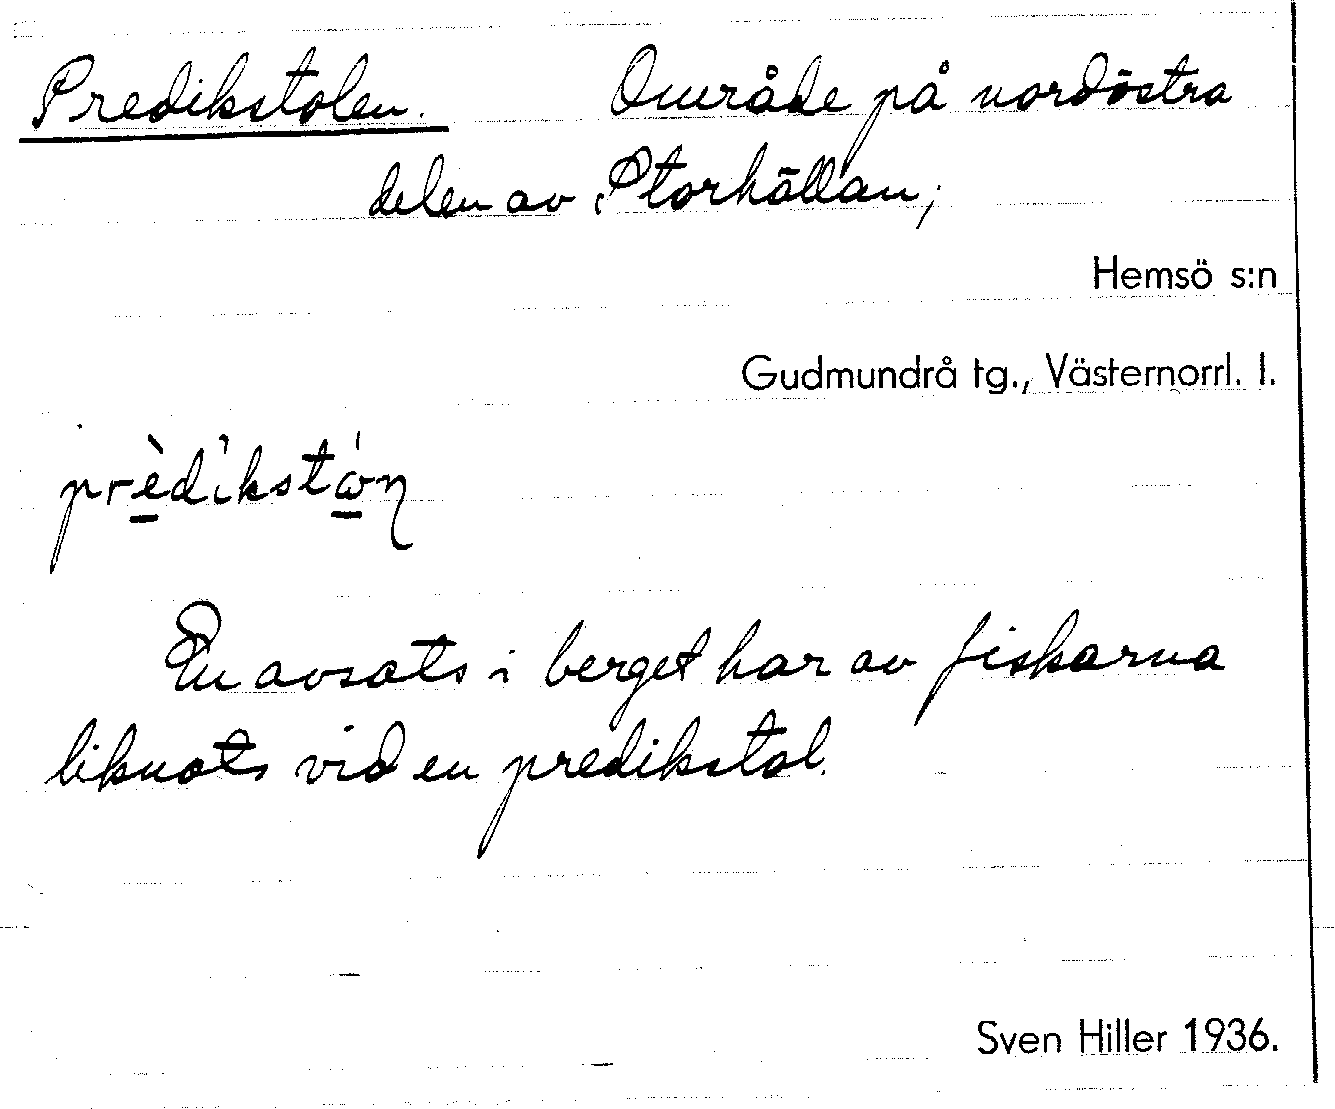 Predikstolen. Område på nordöstra
delen av Storhällan;
Hemsö s:n
Gudmundrå tg., Västernorrl. l.
prèdíkstώn
En avsats i berget har av fiskarna
liknats vid en predikstol.
Sven Hiller 1936.